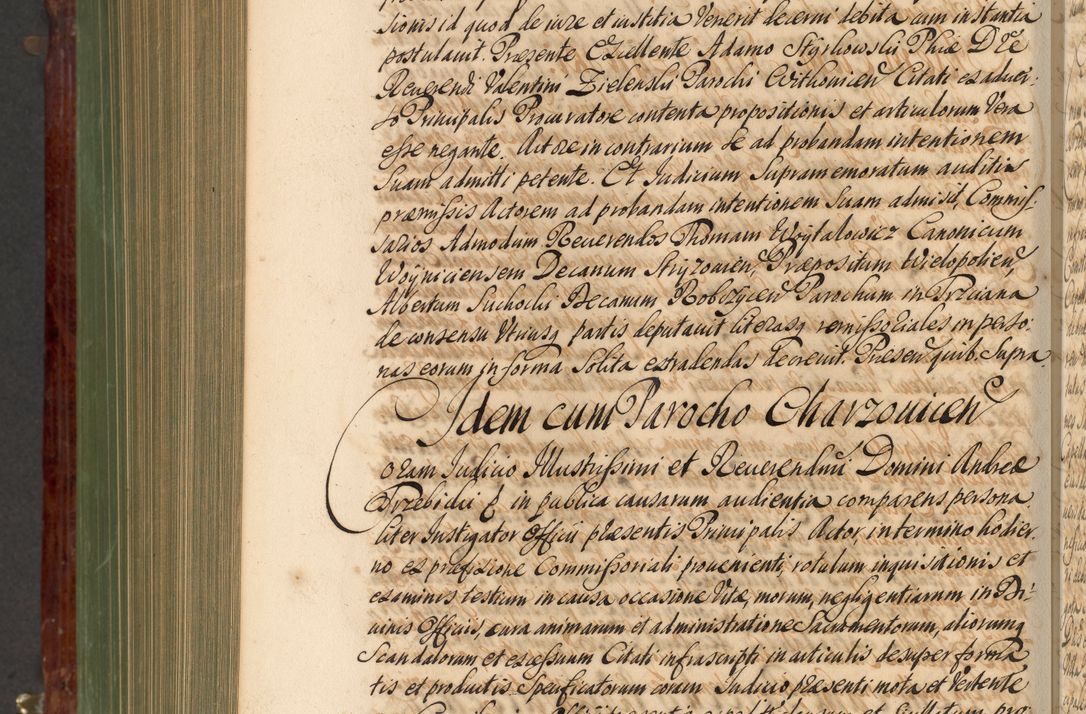 sionis id quod de iure et iustitia Venerit decerni debita cum instantia
postulauit. Præsente Excellente Adamo Styrkowski Phiæ Dre
Reuerendi Valentini Zielenski Parochi Withouicen̄ Citati ex aduer:
so Principalis Procuratore contenta propositionis et articulorum Vera
esse negante. Actore in contrarium se ad probandam intentionem
Suam admitti petente. Et Iudicium Supramemoratum auditis
præmissis Actorem ad probandam intentionem Suam admisit, Commis:
sarios Admodum Reuerendos Thomam Woytalowicz Canonicum
Woyniciensem Decanum Stryzouien̄, Præpositum Wielopolien̄,
Albertum Suchocki Decanum Robczycen̄ Parochum in Trzciana
de consensu Vtriusq partis deputauit literasq remissoriales in perso:
nas eorum in forma Solita extradendas decreuit. Presen̄ quib. Supra
Idem cum Parocho Charzouicen̄
Coram Iudicio Illustrissimi et Reuerendmi Domini Andreæ
Trzebicki in publica causarum audientia comparens persona
liter Instigator Officii præsentis Principalis Actor in termino hodier
no ex præfixione Commissoriali prouenienti, rotulum inquisitionis et
examinis testium in causa occasione Vitæ, morum, negligentiarum in Di:
uinis Officiis, cura animarum et administratione Sacramentorum, aliorumq
Scandalorum et excessuum Citati infrascripti in articulis desuper forma
tis et productis Specificatorum coram Iudicio præsenti mota et Vertente